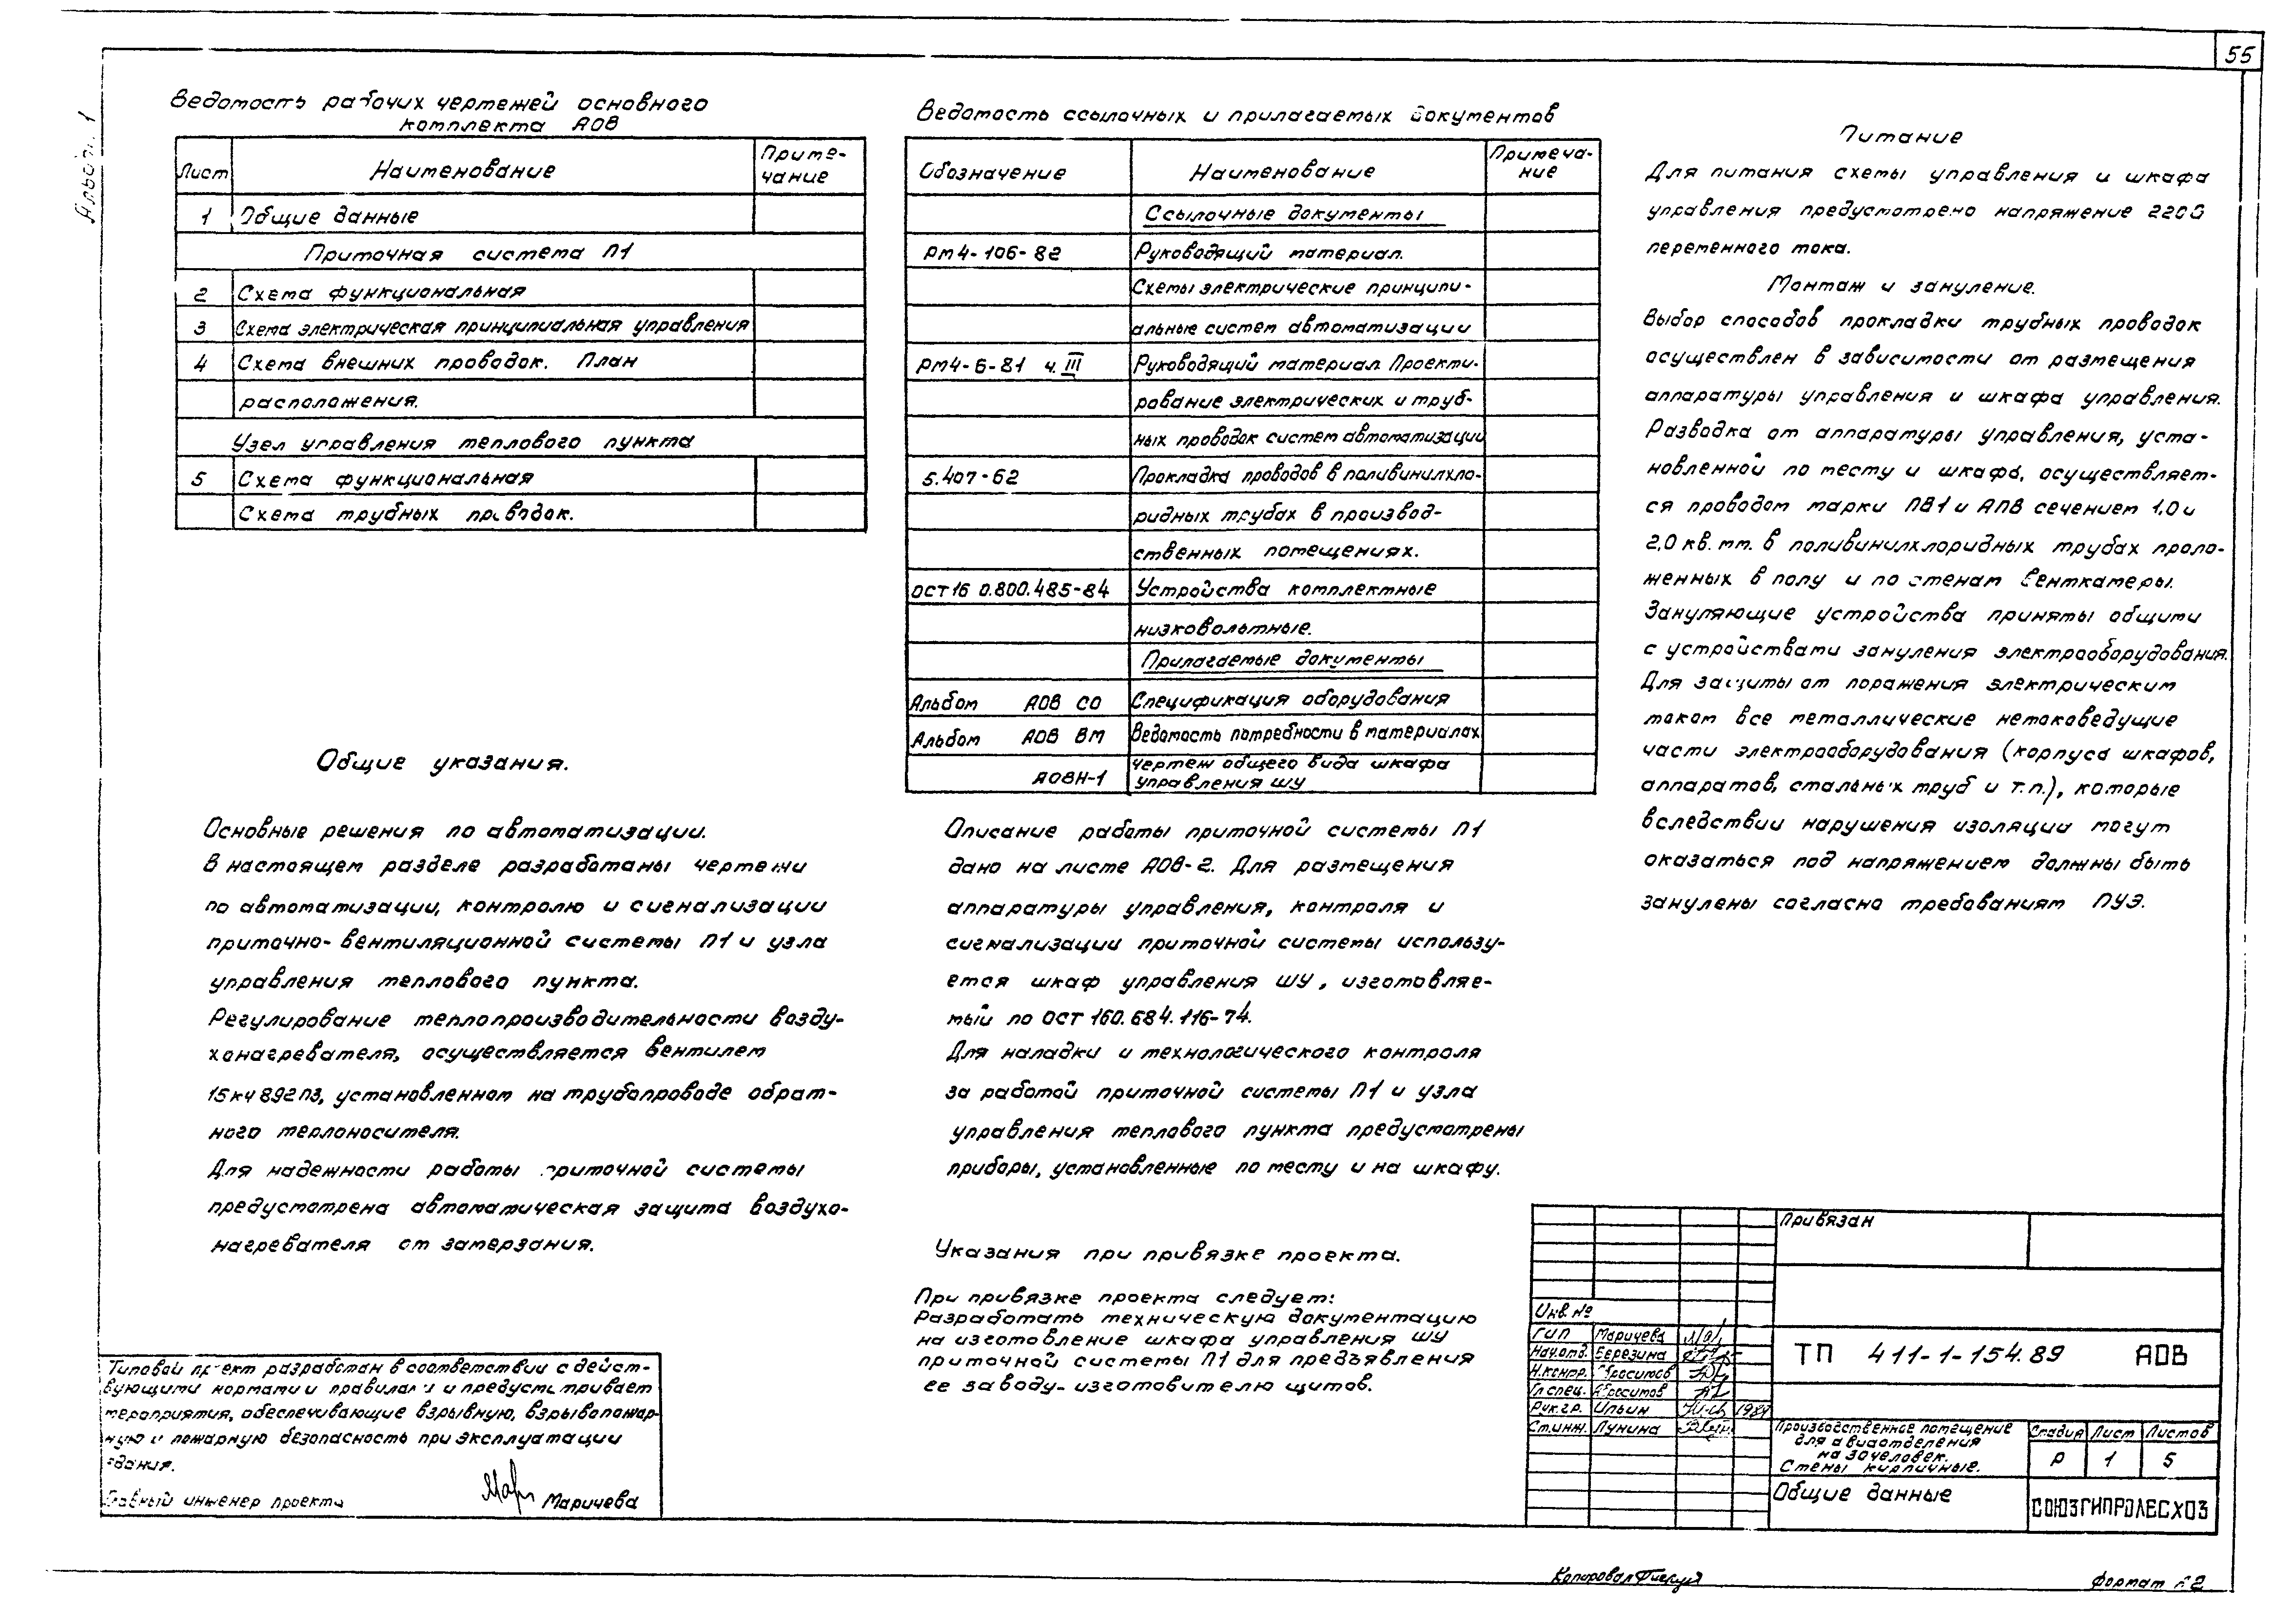 55
Альбом 1
Ведомость рабочих чертежей основного
комплекта АОВ
Лист Наименование Приме-
чание
1 Общие данные
Приточная система П1
2 Схема функциональная
3 Схема электрическая принципиальная управления
4 Схема внешних проводок. План
расположения.
Узел управления теплового пункта
5 Схема функциональная
Схема трубных проводок.
Общие указания.
Основные решения по автоматизации.
В настоящем разделе разработаны чертежи
по автоматизации, контролю и сигнализации
приточно-вентиляционной системы П1 и узла
управления теплового пункта.
Регулирование теплопроизводительности возду-
хонагревателя, осуществляется вентилем
15кч 892п3, установленном на трубопроводе обрат-
ного теплоносителя.
Для надежности работы приточной системы
предусмотрена автоматическая защита воздухо-
нагревателя от замерзания.
Типовой проект разработан в соответствии с дейст-
вующими нормами и правилами и предусматривает
мероприятия, обеспечивающие взрывную, взрывопожар-
ную и пожарную безопасность при эксплуатации
здания.
Главный инженер проекта Маричева
Ведомость ссылочных и прилагаемых документов
Обозначение Наименование Примеча-
ние
Ссылочные документы
РМ4-106-82 Руководящий материал.
Схемы электрические принципи-
альные систем автоматизации
РМ4-6-81 ч. III Руководящий материал. Проекти-
рование электрических и труб-
ных проводок систем автоматизации
5.407-62 Прокладка проводов в поливинилхло-
ридных трубах в производ-
ственных помещениях.
ОСТ16 0.800.485-84 Устройства комплектные
низковольтные.
Прилагаемые документы
Альбом АОВ СО Спецификация оборудования
Альбом АОВ ВМ Ведомость потребности в материалах
АОВН-1 Чертеж общего вида шкафа
управления ШУ
Описание работы приточной системы П1
дано на листе АОВ-2. Для размещения
аппаратуры управления, контроля и
сигнализации приточной системы использу-
ется шкаф управления ШУ, изготовляе-
мый по ОСТ 160.684.116-74.
Для наладки и технологического контроля
за работой приточной системы П1 и узла
управления теплового пункта предусмотрены
приборы, установленные по месту и на шкафу.
Указания при привязке проекта.
При привязке проекта следует:
Разработать техническую документацию
на изготовление шкафа управления ШУ
приточной системы П1 для предъявления
ее заводу-изготовителю щитов.
Питание
Для питания схемы управления и шкафа
управления предусмотрено напряжение 220В
переменного тока.
Монтаж и зануление.
Выбор способов прокладки трубных проводок
осуществлен в зависимости от размещения
аппаратуры управления и шкафа управления.
Разводка от аппаратуры управления, уста-
новленной по месту и шкафа, осуществляет-
ся проводом марки ПВ1 и АПВ сечением 1,0 и
2,0 кв. мм. в поливинилхлоридных трубах проло-
женных в полу и по стенам венткамеры.
Зануляющие устройства приняты общими
с устройствами зануления электрооборудования.
Для защиты от поражения электрическим
током все металлические нетоковедущие
части электрооборудования (корпуса шкафов,
аппаратов, стальных труб и т.п.), которые
вследствии нарушения изоляции могут
оказаться под напряжением должны быть
занулены согласно требованиям ПУЭ.
Привязан
Инв №
ГИП Маричева
Нач.отд. Березина
Н.контр. Абросимов
Гл.спец. Абросимов
Рук.гр. Ильин 1989
Ст.инж. Лунина
ТП 411-1-154.89 АОВ
Производственное помещение
для авиаотделения
на 30 человек.
Стены кирпичные.
Стадия Лист Листов
Р 1 5
Общие данные
СОЮЗГИПРОЛЕСХОЗ
Копировал
Формат А2